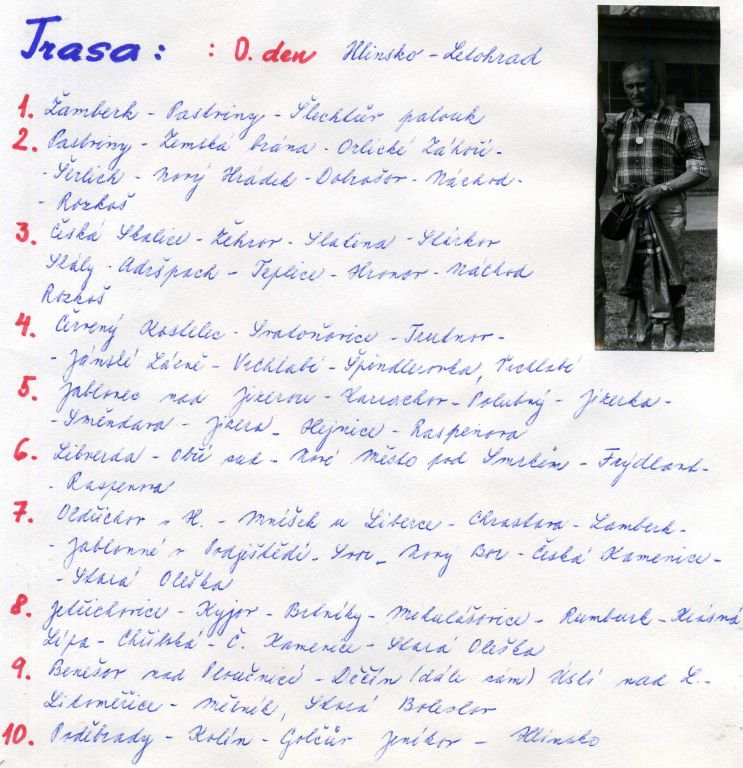 Trasa: : 0. den Hlinsko - Letohrad
1. Žamberk - Pastviny - Šlechtův palouk
2. Pastviny - Zemská brána - Orlické Záhoří -
- Šerlich - Nový Hrádek - Dobrošov - Náchod -
- Rozkoš
3. Česká Skalice - Žehrov - Slatina - Stárkov
Skály - Adršpach - Teplice - Hronov - Náchod
Rozkoš
4. Červený Kostelec - Svatoňovice - Trutnov -
- Jánské Lázně - Vrchlabí - Špindlerovka, Vrchlabí
5. Jablonec nad Jizerou - Harrachov - Polubný - Jizerka -
- Smědava - Jizera - Hejnice - Raspenava
6. Libverda - Obří sud - Nové Město pod Smrkem - Frýdlant -
- Raspenava
7. Oldřichov v H. - Mníšek u Liberce - Chrastava - Lamberk -
- Jablonné v Podještědí - Svor - Nový Bor - Česká Kamenice -
- Stará Oleška
8. Jetřichovice - Kyjov - Brtníky - Mikulášovice - Rumburk - Krásná
Lípa - Chřibská - Č. Kamenice - Stará Oleška
9. Benešov nad Ploučnicí - Děčín (dále sám) Ústí nad L. -
Litoměřice - Mělník, Stará Boleslav
10. Poděbrady - Kolín - Golčův Jeníkov - Hlinsko